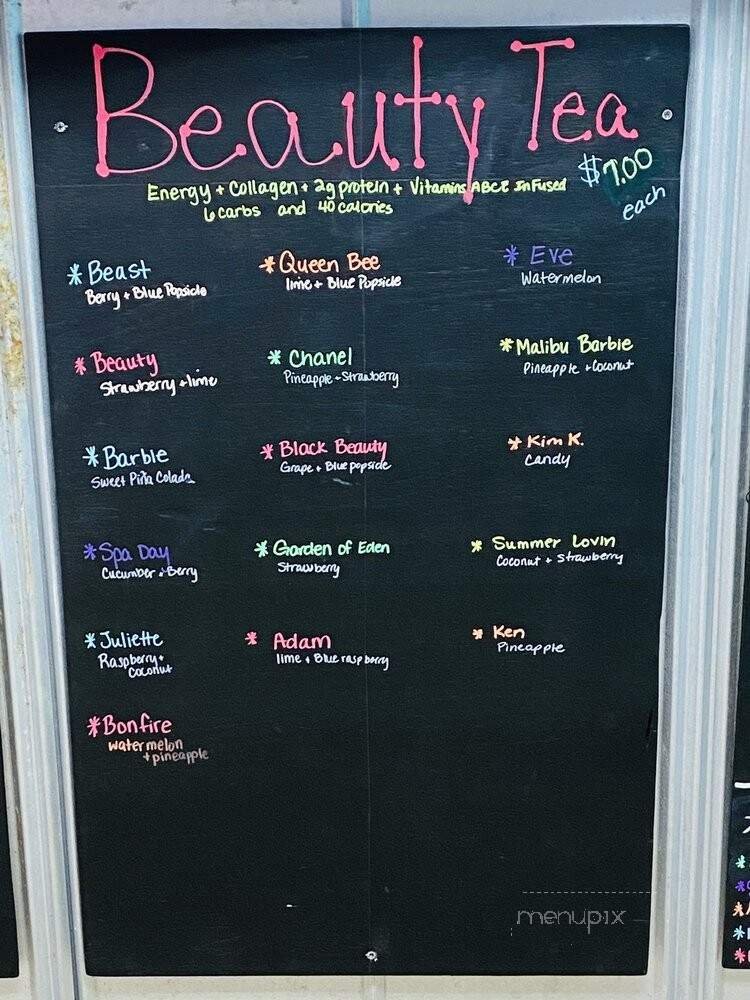 Beauty Tea
$7.00
each
Energy + Collagen + 2g protein + Vitamins ABCE Infused
6 carbs and 40 calories
* Beast
Berry + Blue Popsicle
* Queen Bee
lime + Blue Popsicle
* Eve
Watermelon
* Beauty
Strawberry + lime
* Chanel
Pineapple + Strawberry
* Malibu Barbie
Pineapple + Coconut
* Barbie
Sweet Piña Colada
* Black Beauty
Grape + Blue popsicle
* Kim K.
Candy
* Spa Day
Cucumber + Berry
* Garden of Eden
Strawberry
* Summer Lovin
Coconut + Strawberry
* Juliette
Raspberry +
Coconut
* Adam
lime + Blue raspberry
* Ken
Pineapple
* Bonfire
watermelon
+ pineapple
menupix